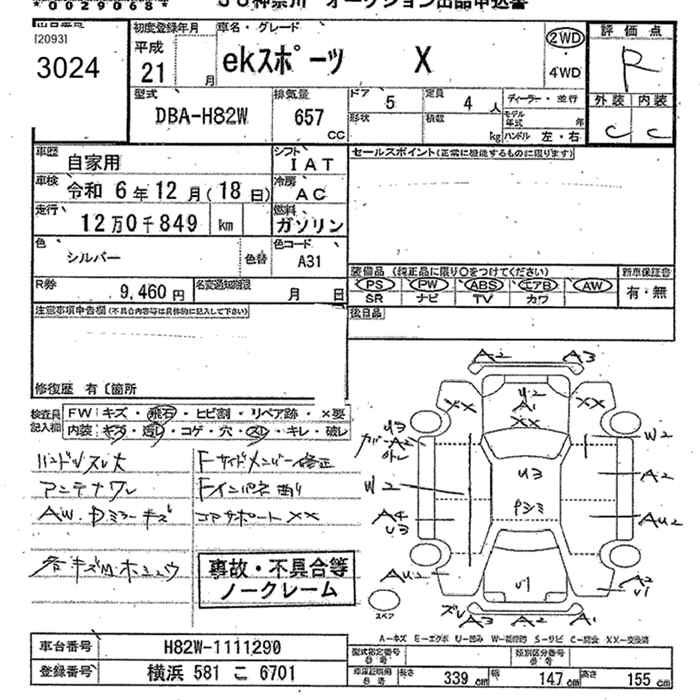 JU神奈川 オークション出品申込書
[2093]
3024
初度登録年月
平成
21 月
車名・グレード
ekスポーツ X
2WD
4WD
評価点
R
外装 内装
C C
型式
DBA-H82W
排気量
657 CC
ドア 5
形状
定員 4 人
積載 kg
ディーラー・並行
モデル年式 年
ハンドル 左・右
車歴 自家用
シフト IAT
セールスポイント(正常に機能するものに限ります)
車検 令和 6年 12月(18日)
冷房 AC
走行 12万0千849 km
燃料 ガソリン
色 シルバー
色替
色コード A31
R券 9,460円
名変通知期限 月 日
装備品(純正品に限り○をつけてください)
新車保証書
PS PW ABS エアB AW
有・無
SR ナビ TV カワ
後日品
注意事項申告欄(不具合内容等は具体的に記入して下さい)
修復歴 有〔箇所
検査員記入欄
FW:キズ・飛石・ヒビ割・リペア跡・×要
内装:キズ・汚レ・コゲ・穴・スレ・キレ・破レ
ハンドルスレ大
アンテナワレ
AW.Dミラーキズ
各キズ凹.ホシュウ
Fサイドメンバー修正
Fインパネ曲り
コアサポート XX
事故・不具合等
ノークレーム
A2 A3
XX U2 A1 XX XX
U3 A2 W2
W2 U3 A2
A4 U3 Pシミ AU2
AU2 U1 A2 U1
スペア
ズレ A3 A2 A1
A-キズ E-エクボ U-凹み W-補修跡 S-サビ C-腐食 XX-交換済
車台番号 H82W-1111290
登録番号 横浜 581 こ 6701
型式指定番号 参考
類別区分番号 参考
車庫証明用 参考
長さ 339 cm
幅 147 cm
高さ 155 cm